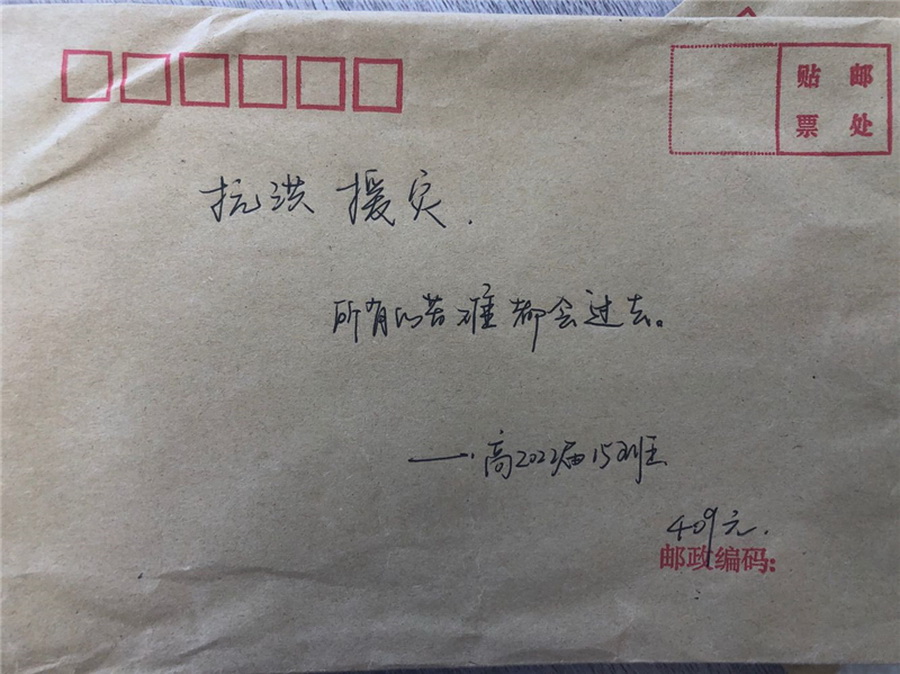 贴 邮
票 处
抗洪 援灾.
所有的苦难都会过去。
——高2022届15班
409元.
邮政编码: